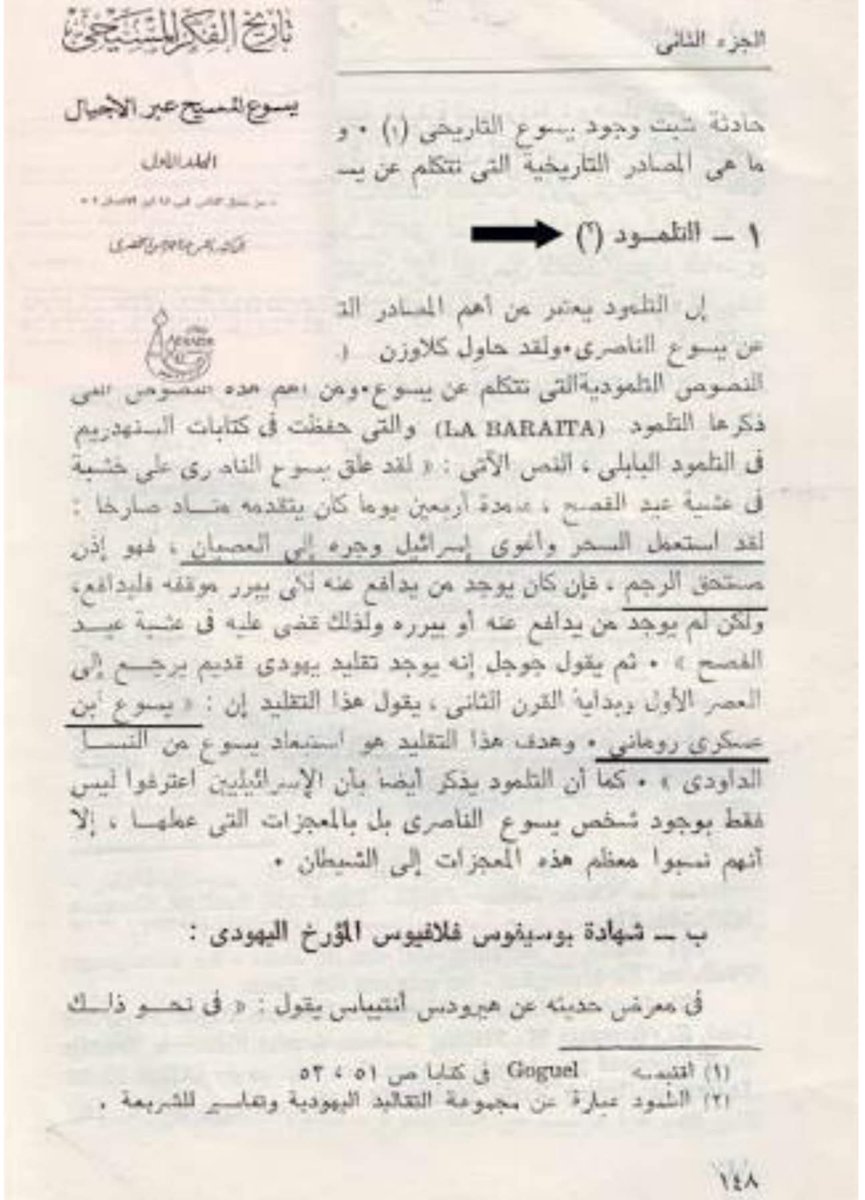 تاريخ الفكر المسيحي
يسوع المسيح عبر الأجيال
المجلد الأول
الجزء الثانى
حادثة تثبت وجود يسوع التاريخى (١) • و
ما هى المصادر التاريخية التى تتكلم عن يسـ
١ ــ التلمــود (٢)
إن التلمود يعتبر من أهم المصادر التـ
عن يسوع الناصرى•ولقد حاول كلاوزن (
النصوص التلموديةالتى تتكلم عن يسوع•ومن أهم هذه النصوص التى
ذكرها التلمود (LA BARAITA) والتى حفظت فى كتابات السنهدريم
فى التلمود البابلى ، النص الآتى : « لقد علق يسوع الناصرى على خشبة
فى عشية عيد الفصح ، ولمدة أربعين يوما كان يتقدمه منــاد صارخا :
لقد استعمل السحر وأغوى إسرائيل وجره إلى العصيان ، فهو إذن
مستحق الرجم ، فإن كان يوجد من يدافع عنه لكى يبرر موقفه فليدافع،
ولكن لم يوجد من يدافع عنه أو يبرره ولذلك قضى عليه فى عشية عيــد
الفصح » • ثم يقول جوجل إنه يوجد تقليد يهودى قديم يرجــع إلى
العصر الأول وبداية القرن الثانى ، يقول هذا التقليد إن : « يسوع ابن
عسكرى رومانى • وهدف هذا التقليد هو استبعاد يسوع من النســل
الداودى » • كما أن التلمود يذكر أيضا بأن الإسرائيليين اعترفوا ليس
فقط بوجود شخص يسوع الناصرى بل بالمعجزات التى عملهــا ، إلا
أنهم نسبوا معظم هذه المعجزات إلى الشيطان •
ب ــ شهادة يوسيفوس فلافيوس المؤرخ اليهودى :
فى معرض حديثه عن هيرودس أنتيباس يقول : « فى نحــو ذلــك
(١) اقتبسه Goguel فى كتابا ص ٥١ ، ٥٣
(٢) التلمود عبارة عن مجموعة التقاليد اليهودية وتفاسير للشريعة .
١٤٨